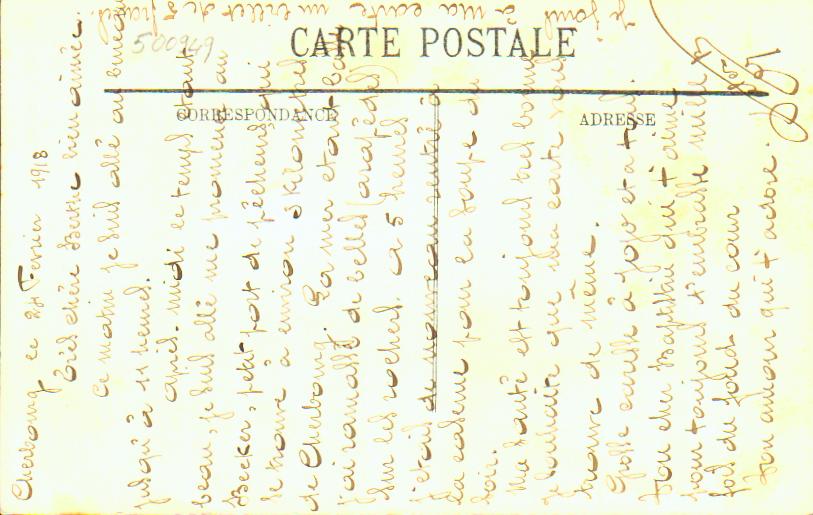 CARTE POSTALE
CORRESPONDANCE
ADRESSE
500949
Cherbourg le 28 Fevrier 1918
Très chère Berthe bien aimée.
Ce matin je suis allé au bureau
jusqu'à 11 heures.
après-midi le temps étant
beau, je suis allé me promener au
Becker, petit port de pêcheurs qui
se trouve à environ 3 kilomètres
de Cherbourg. La mer étant basse
j'ai ramassé de belles (arapèdes)
sur les rochers. à 5 heures
j'étais de nouveau rentré à
la caserne pour la soupe du
soir.
Ma santé est toujours très bonne
je souhaite que ma carte vous
trouve de même.
Grosse caresse à Jojo et à toi.
Ton cher Baptistin qui t'aime
pour toujours t'embrasse mille
fois du fond du cœur
Ton amour qui t'adore.
Je joins à ma carte un billet de 5 francs